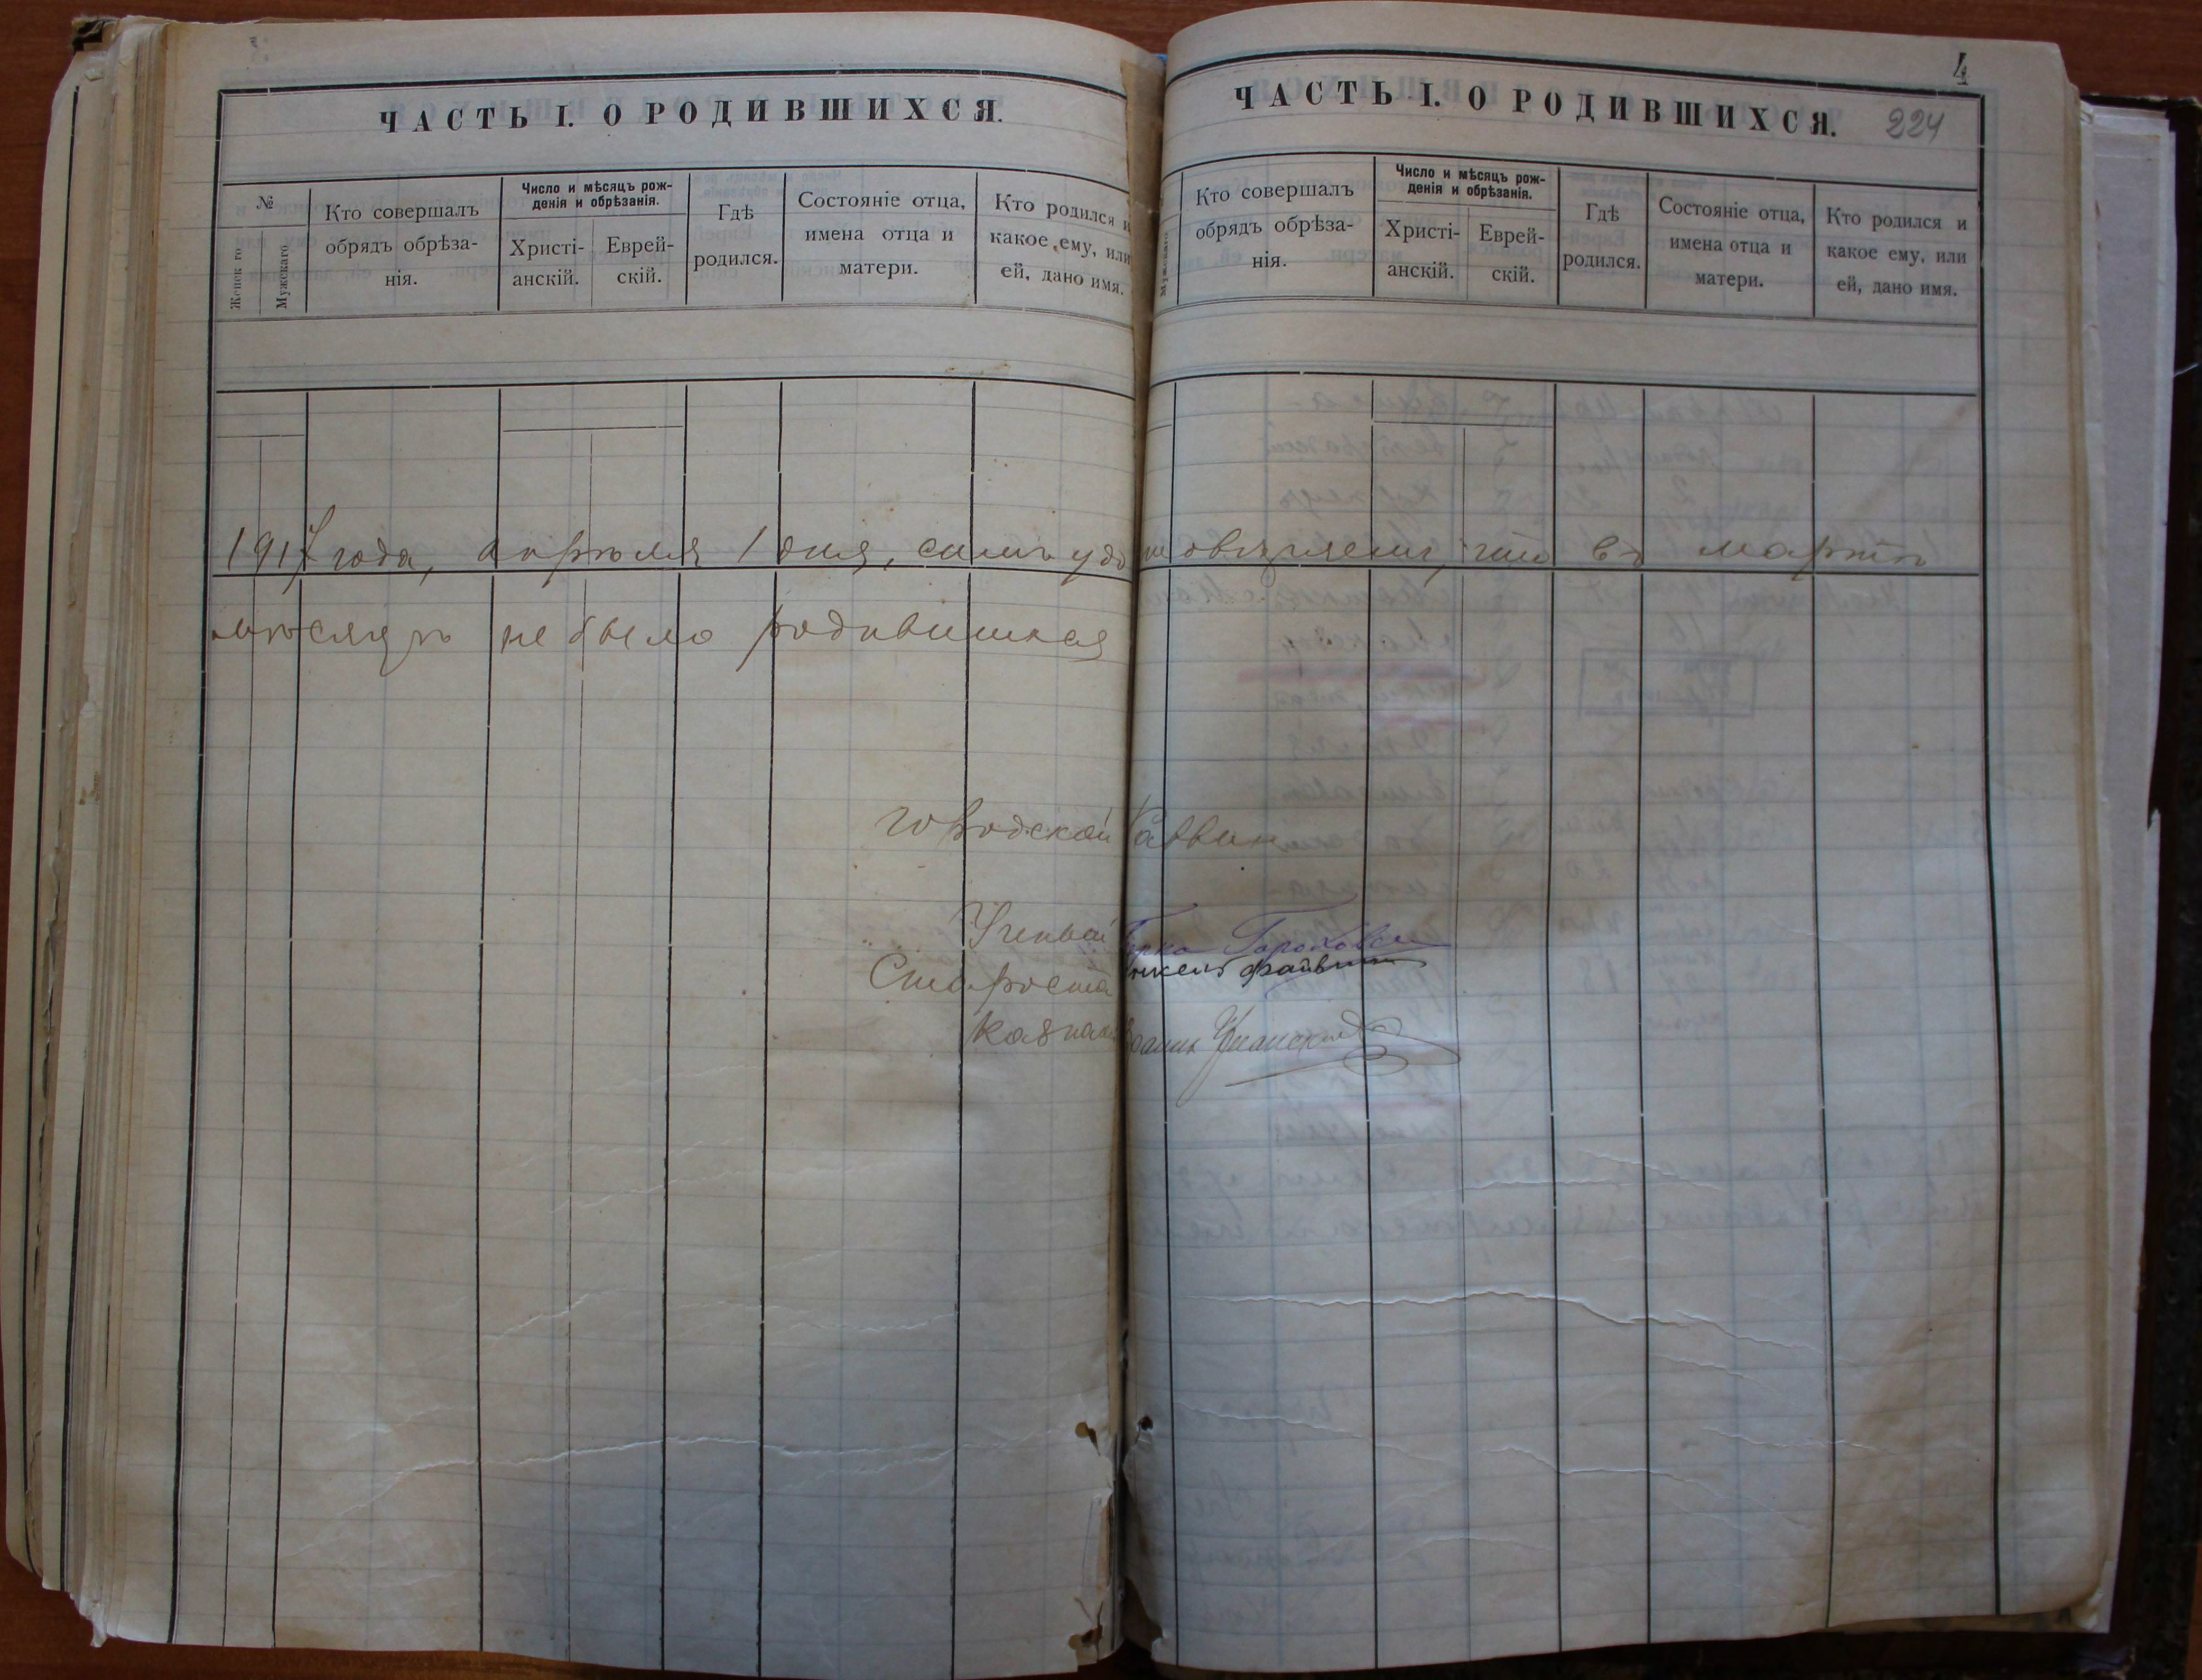 ЧАСТЬ I. О РОДИВШИХСЯ.
№
Женск го
Мужскаго
Кто совершалъ
обрядъ обрѣза-
нія.
Число и мѣсяцъ рож-
денія и обрѣзанія.
Христі-
анскій.
Еврей-
скій.
Гдѣ
родился.
Состояніе отца,
имена отца и
матери.
Кто родился и
какое ему, или
ей, дано имя.
4
ЧАСТЬ I. О РОДИВШИХСЯ.
224
Мужскаго
Кто совершалъ
обрядъ обрѣза-
нія.
Число и мѣсяцъ рож-
денія и обрѣзанія.
Христі-
анскій.
Еврей-
скій.
Гдѣ
родился.
Состояніе отца,
имена отца и
матери.
Кто родился и
какое ему, или
ей, дано имя.
1917 года, апрѣля 1 дня, симъ удо что въ мартѣ
мѣсяцѣ не было родившихся
Городской Раввин
Ученый
Староста
Казнач